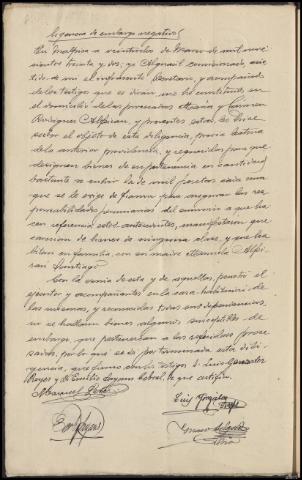 Diligencia de embargo negativo/
En Malpica a veintiocho de Marzo de mil nove-
cientos treinta y dos; yo Alguacil comisionado, asis-
tido de mi el infrascrito Secretario, y acompañado
de los testigos que se dirán me he constituido en
el domicilio de las procesadas María y Carmen
Rodriguez Alfeiran, y presentes estas, les hice
saber el objeto de esta diligencia, previa lectura
de la anterior providencia, y requeridas para que
designen bienes de su pertenencia en cantidad
bastante a cubrir la de mil pesetas cada una
que se le exige de fianza para asegurar las res-
ponsabilidades pecuniarias del sumario a que ha-
cen referencia estos antecedentes, manifestaron que
carecen de bienes de ninguna clase, y que ha-
bitan en familia con su madre Manuela Alfei-
rán Santiago.
Con la venia de esta y de aquellas, penetró el
ejecutor y acompañantes en la casa habitación de
las mismas, y reconocidas todas sus dependencias,
no se hallaron bienes algunos susceptibles de
embargo que pertenezcan a las referidas proce-
sadas, por lo que se da por terminada esta dili-
gencia, que firman con los testigos D. Luis González
Reyes y D. Emilio Cabral, de que certifico.
Manuel
Luis González